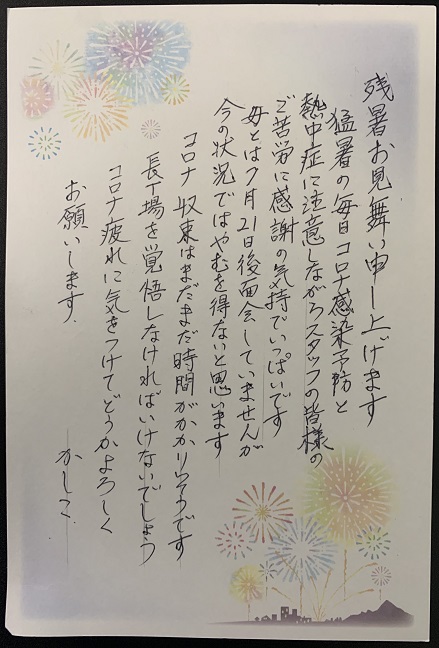 残暑お見舞い申し上げます
猛暑の毎日コロナ感染予防と
熱中症に注意しながらスタッフの皆様の
ご苦労に感謝の気持でいっぱいです
母とは7月21日後面会していませんが
今の状況ではやむを得ないと思います
コロナ収束はまだまだ時間がかかりそうです
長丁場を覚悟しなければいけないでしょう
コロナ疲れに気をつけてどうかよろしく
お願いします
かしこ